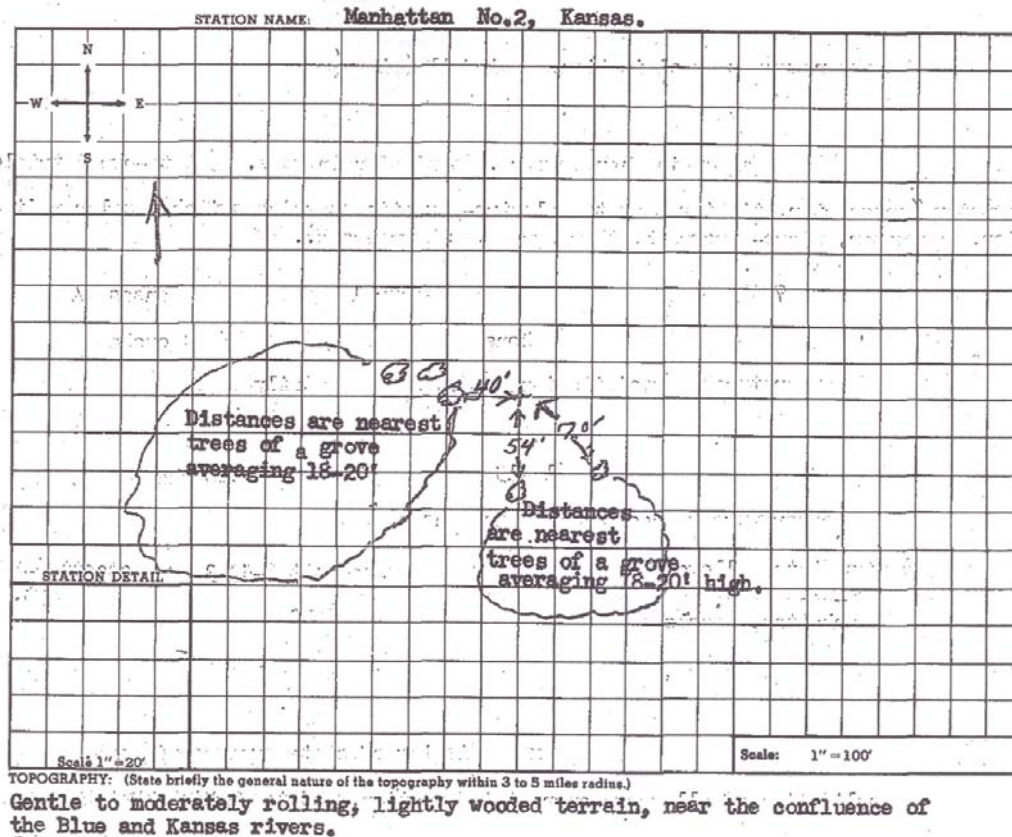 STATION NAME: Manhattan No.2, Kansas.
N
W E
S
40'
70'
54'
Distances are nearest
trees of a grove
averaging 18-20'
Distances
are nearest
trees of a grove
averaging 18-20' high.
STATION DETAIL
Scale 1"=20'
Scale: 1"=100'
TOPOGRAPHY: (State briefly the general nature of the topography within 3 to 5 miles radius.)
Gentle to moderately rolling, lightly wooded terrain, near the confluence of
the Blue and Kansas rivers.